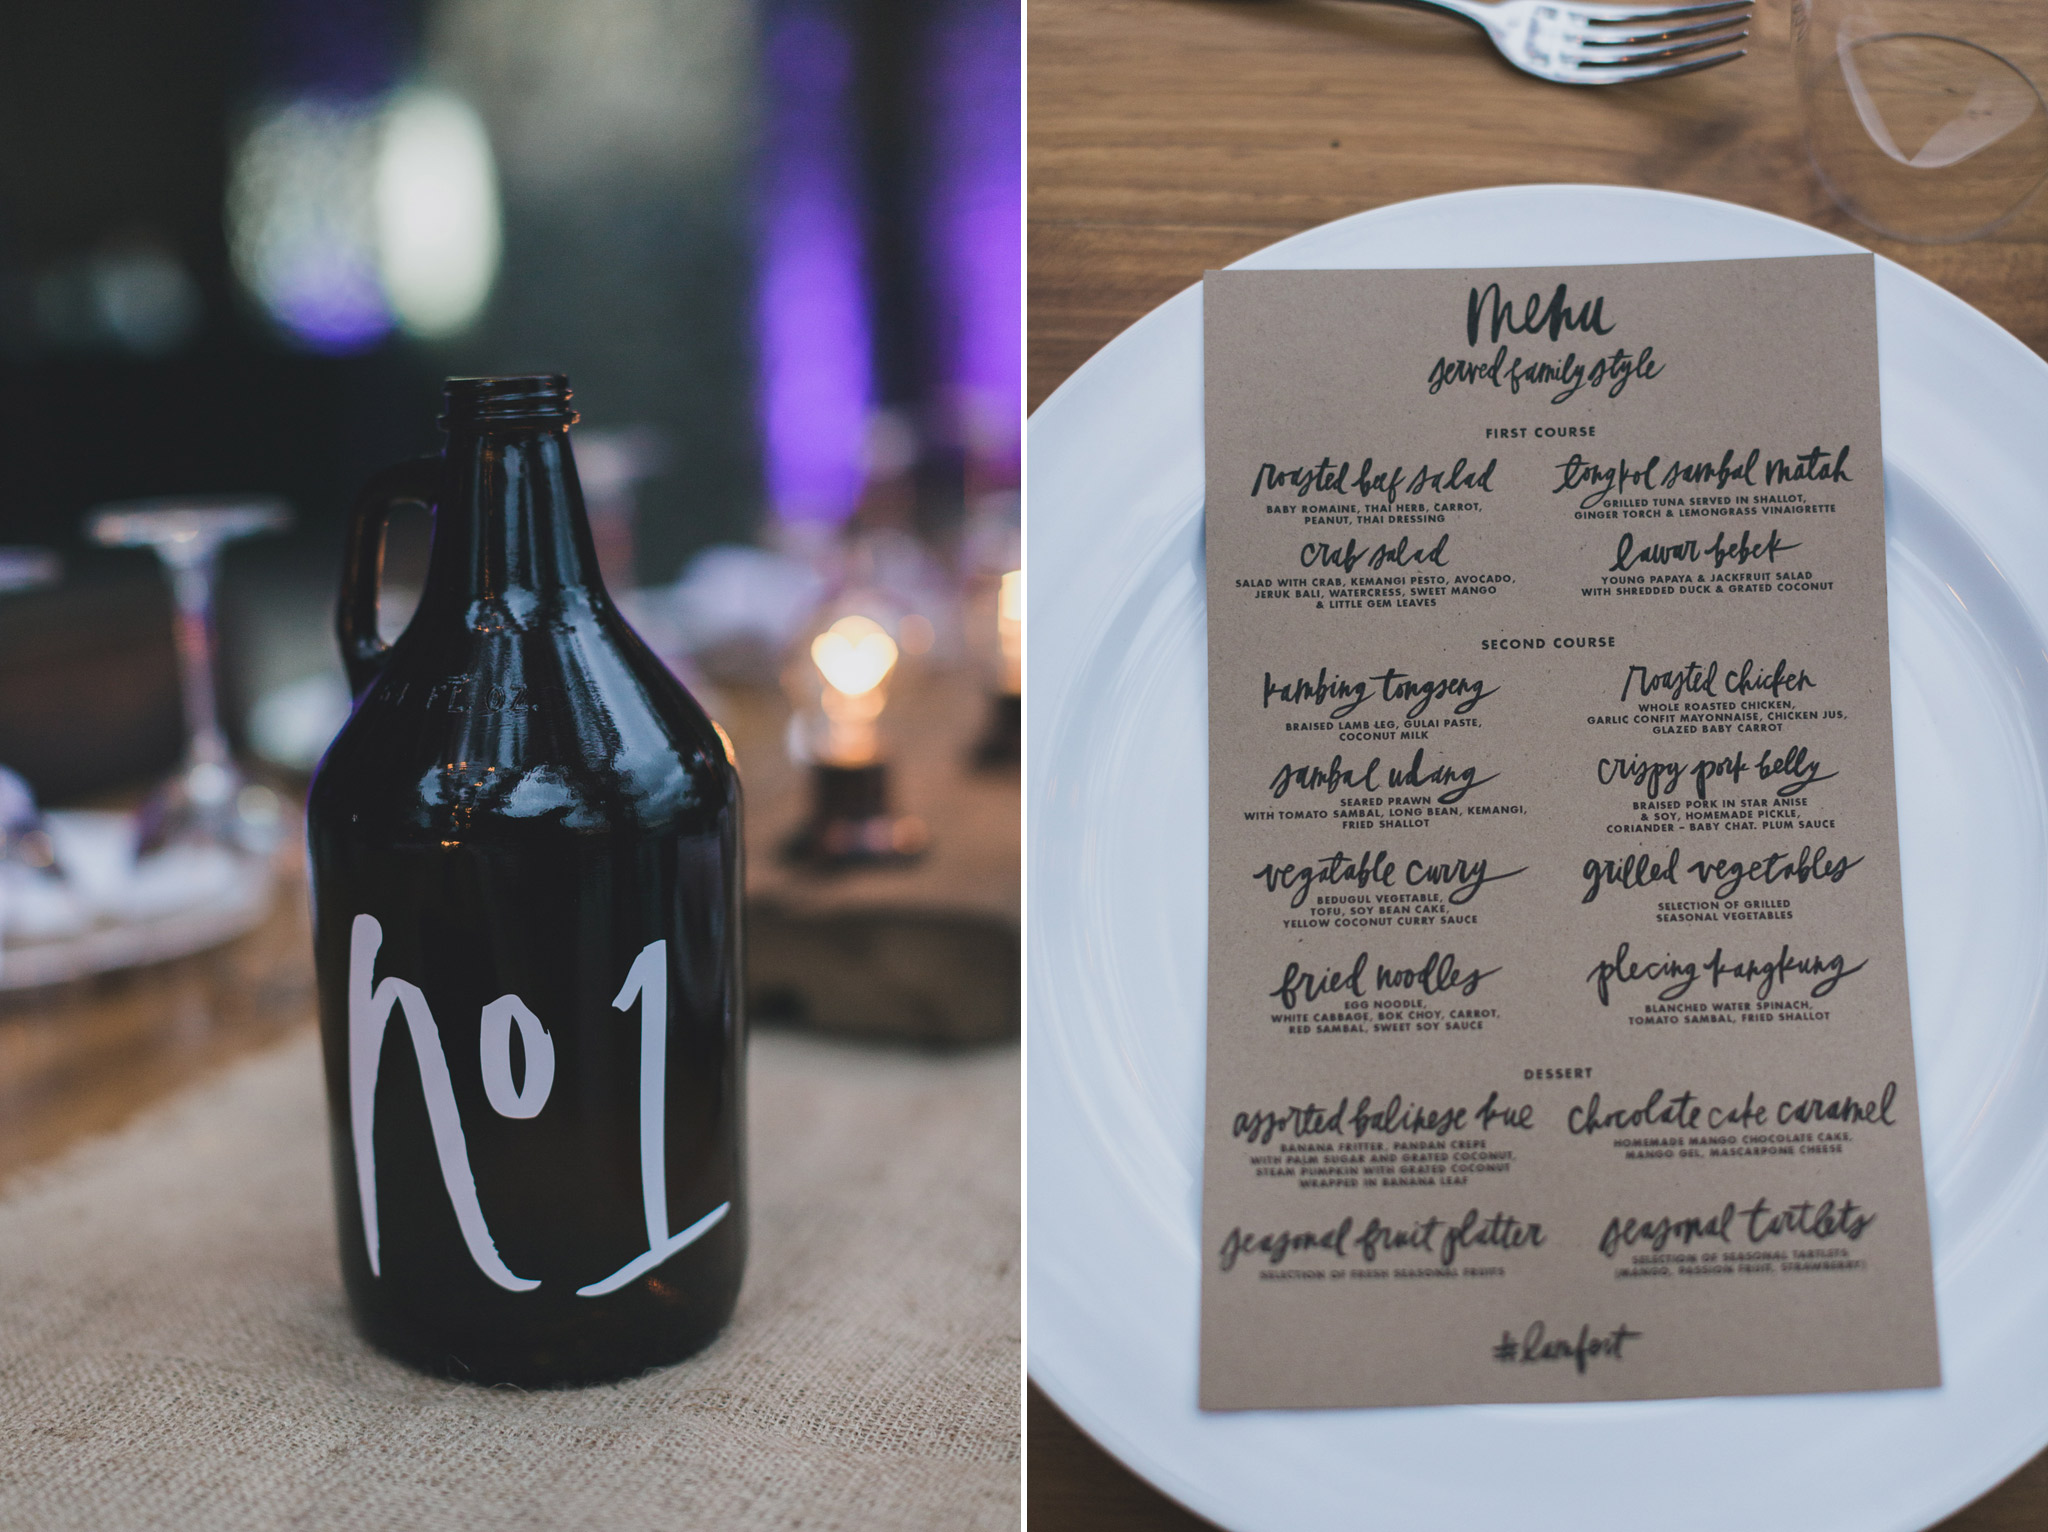 64 FL. OZ.
no 1
menu
served family style
FIRST COURSE
roasted beef salad
BABY ROMAINE, THAI HERB, CARROT,
PEANUT, THAI DRESSING
tongkol sambal matah
GRILLED TUNA SERVED IN SHALLOT,
GINGER TORCH & LEMONGRASS VINAIGRETTE
crab salad
SALAD WITH CRAB, KEMANGI PESTO, AVOCADO,
JERUK BALI, WATERCRESS, SWEET MANGO
& LITTLE GEM LEAVES
lawar bebek
YOUNG PAPAYA & JACKFRUIT SALAD
WITH SHREDDED DUCK & GRATED COCONUT
SECOND COURSE
kambing tongseng
BRAISED LAMB LEG, GULAI PASTE,
COCONUT MILK
roasted chicken
WHOLE ROASTED CHICKEN,
GARLIC CONFIT MAYONNAISE, CHICKEN JUS,
GLAZED BABY CARROT
sambal udang
SEARED PRAWN
WITH TOMATO SAMBAL, LONG BEAN, KEMANGI,
FRIED SHALLOT
crispy pork belly
BRAISED PORK IN STAR ANISE
& SOY, HOMEMADE PICKLE,
CORIANDER – BABY CHAT. PLUM SAUCE
vegatable curry
BEDUGUL VEGETABLE,
TOFU, SOY BEAN CAKE,
YELLOW COCONUT CURRY SAUCE
grilled vegetables
SELECTION OF GRILLED
SEASONAL VEGETABLES
fried noodles
EGG NOODLE,
WHITE CABBAGE, BOK CHOY, CARROT,
RED SAMBAL, SWEET SOY SAUCE
plecing kangkung
BLANCHED WATER SPINACH,
TOMATO SAMBAL, FRIED SHALLOT
DESSERT
assorted balinese kue
BANANA FRITTER, PANDAN CREPE
WITH PALM SUGAR AND GRATED COCONUT,
STEAM PUMPKIN WITH GRATED COCONUT
WRAPPED IN BANANA LEAF
chocolate cake caramel
HOMEMADE MANGO CHOCOLATE CAKE,
MANGO GEL, MASCARPONE CHEESE
seasonal fruit platter
SELECTION OF FRESH SEASONAL FRUITS
seasonal tartlets
SELECTION OF SEASONAL TARTLETS
(MANGO, PASSION FRUIT, STRAWBERRY)
#lamfort